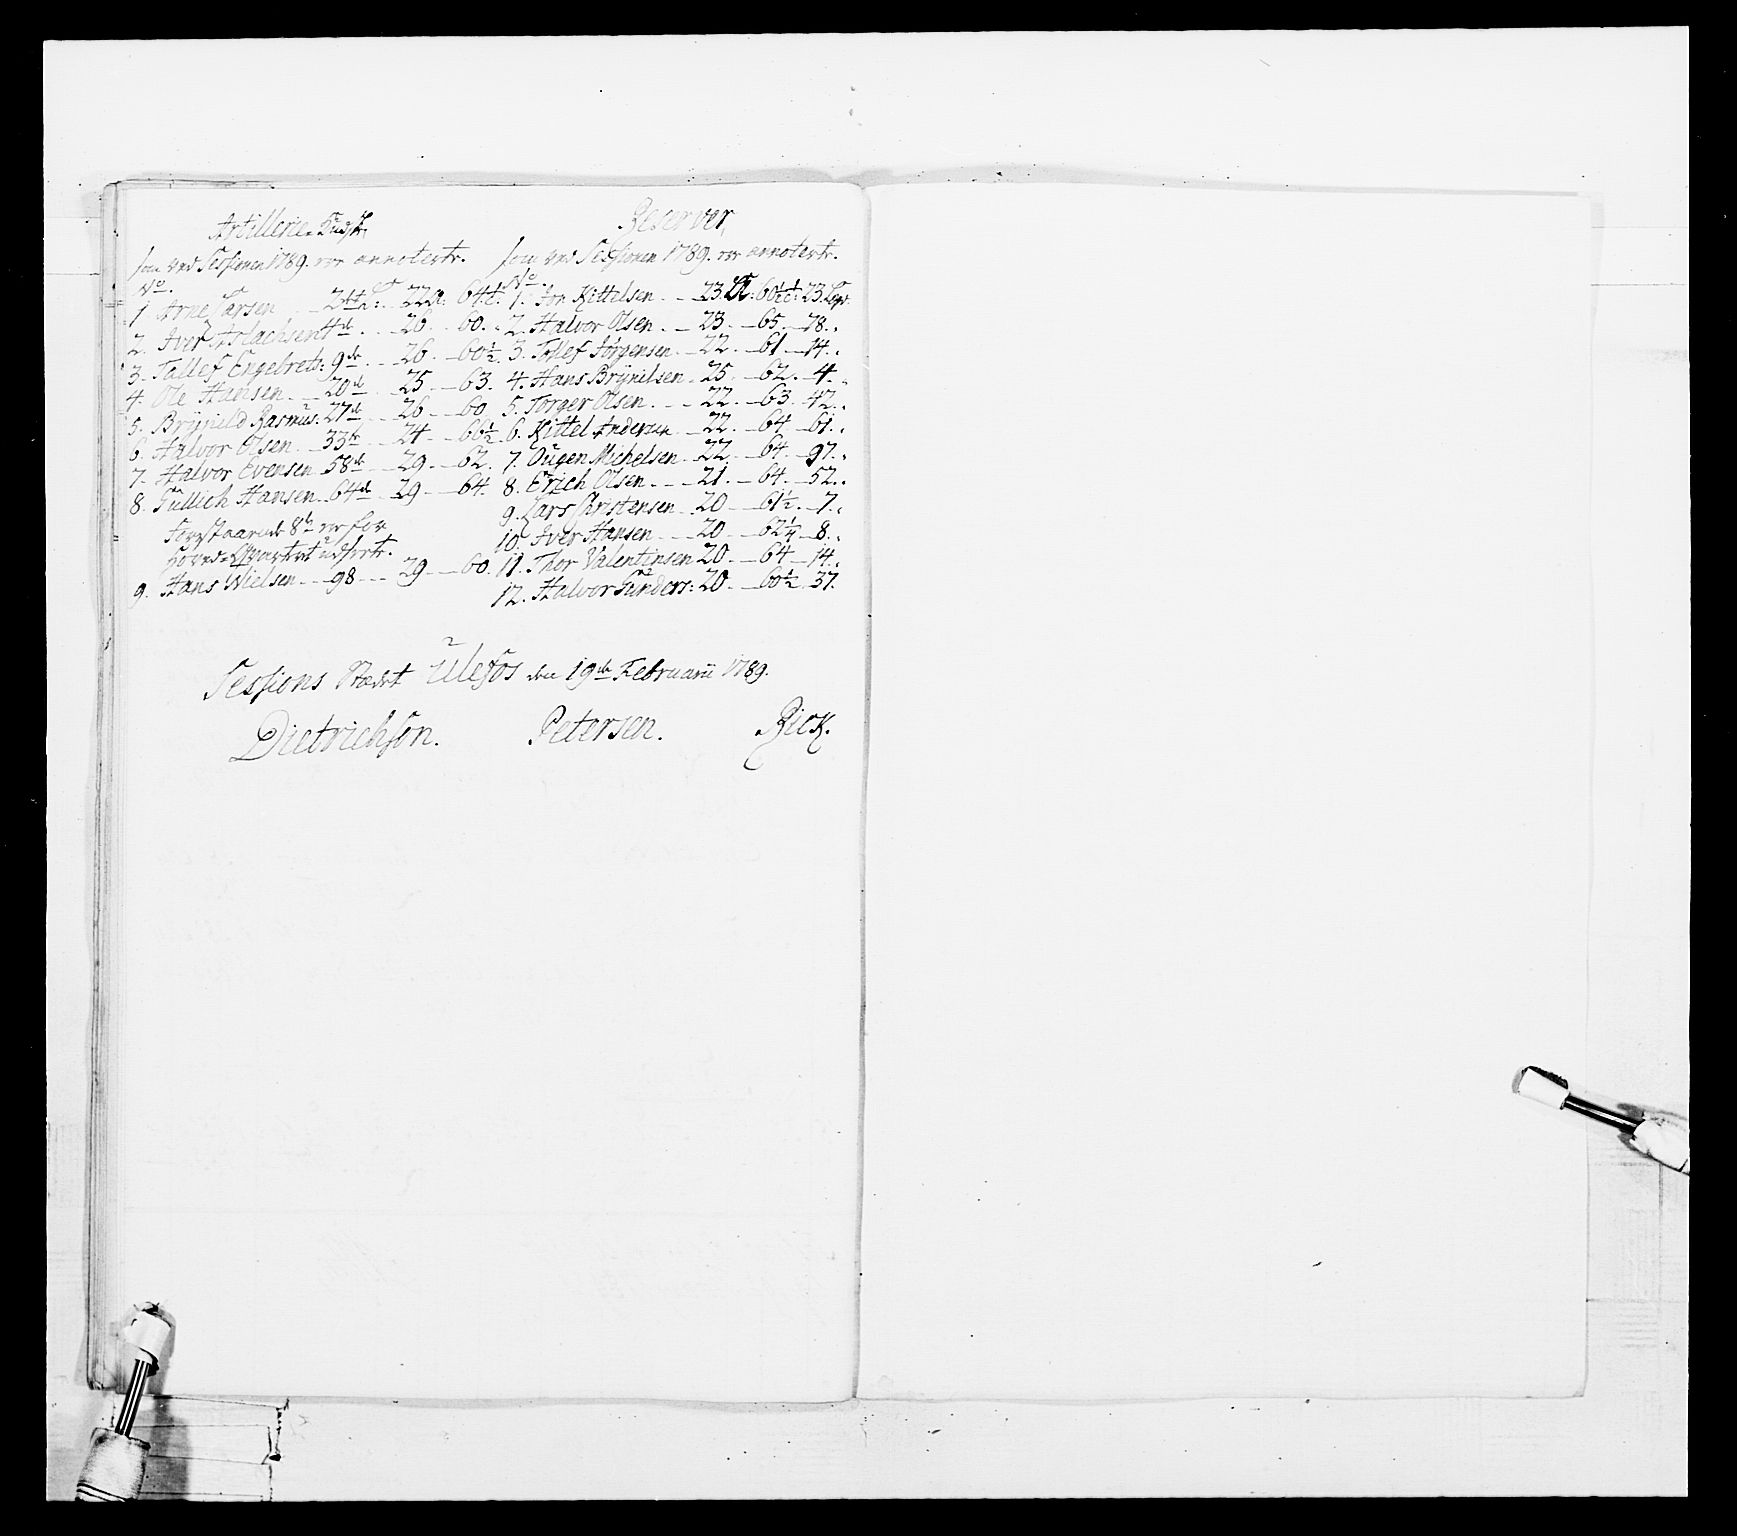 Artillerie Kudsk:
som ved Sessionen 1789. er annoteret.
No.
1 Arne Larsen 22a: 64
2. Iver Aslachsen 4de 26. 60.
3. Tallef Engelrets: 9de 26. 60½
4 Ole Hansen 20de 25 63.
5. Brynild Rasmus: 27de 26 60
6. Halvor Olsen 33te 24 66½
7. Halvor Evensen 58de 29. 62.
8. Gullich Hansen 64de 29 64.
Forestaaende 8te er for
Hoved Qvarteret udsorte.
9. Hans Nielsen 98 29 60.
Reserver,
som ved Sessionen 1789. er annoteret.
No.
1. Jon Kittelsen 23. 60 23
2. Halvor Olsen 23. 65. 78.
3. Tollef Jörgensen 22. 61 14.
4. Hans Brynilsen 25. 62. 4.
5. Torger Olsen 22. 63. 42.
6. Kittel Andersen 22. 64 61.
7. Ougen Michelsen 22. 64. 97.
8. Erich Olsen 21. 64. 52.
9. Lars Christensen 20 61½. 7.
10. Iver Hansen 20 62¼ 8.
11. Thor Valentinsen 20. 64 14.
12. Halvor Gunders: 20. 60½ 37.
Sessions Stædet Ulefos den 19de Februarii 1789.
Dietrichson. Petersen. Rick.